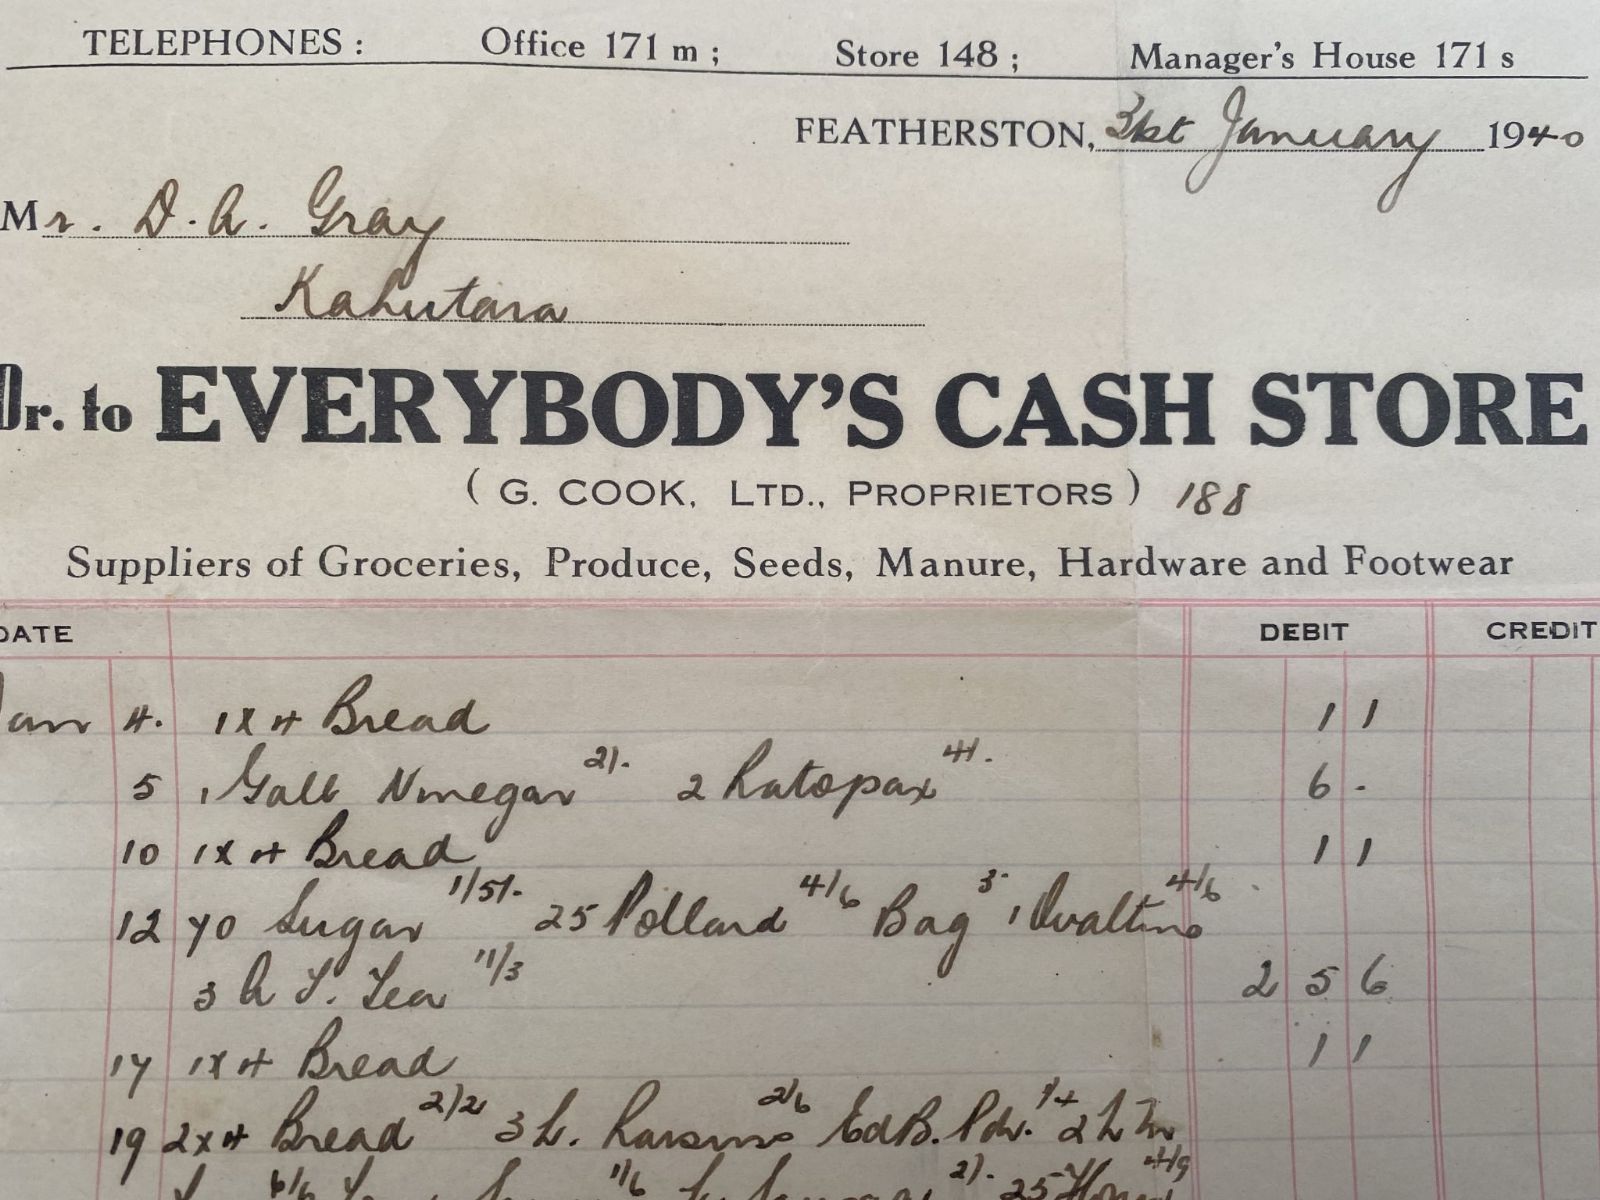 TELEPHONES: Office 171 m; Store 148; Manager's House 171 s
FEATHERSTON, 31st January 1940
Mr. D. A. Gray
Kahutara
Dr. to EVERYBODY'S CASH STORE
(G. COOK, LTD., PROPRIETORS) 188
Suppliers of Groceries, Produce, Seeds, Manure, Hardware and Footwear
DATE DEBIT CREDIT
Jan 4. 1 x 4 Bread 1 1
5 1 Gall Vinegar 2/- 2 4/- 6 -
10 1 x 4 Bread 1 1
12 70 Sugar 1/5/- 25 Pollard 4/6 Bag 3 1 Ovaltine 4/6
3 A T. Tea 11/3 2 5 6
17 1 x 4 Bread 1 1
19 2 x 4 Bread 2/2 3 L. 2/6 Ed B. Pdr. 1/4 2 L
6/6 1/6 2/- 25 Honey 4/9